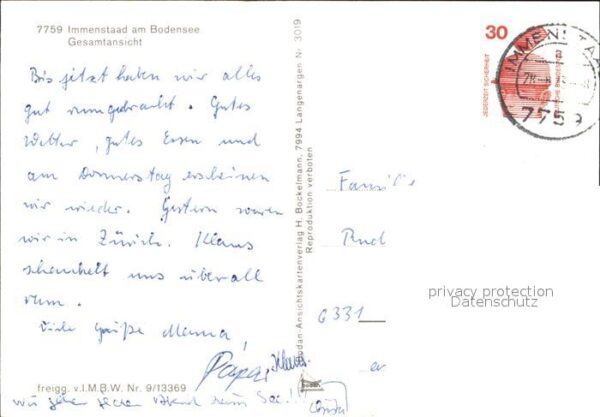 7759 Immenstaad am Bodensee
Gesamtansicht
Bis jetzt haben wir alles
gut rumgebracht. Gutes
Wetter, gutes Essen und
am Donnerstag erscheinen
wir wieder. Gestern waren
wir in Zürich. Klaus
schaukelt uns überall
rum.
Viele Grüße Mama,
Papa, Klaus.
wir gehen jeden Abend zum See!!
freigg. v.I.M.B.W. Nr. 9/13369
Ansichtskartenverlag H. Bockelmann, 7994 Langenargen Nr. 3019
Reproduktion verboten
30
JEDERZEIT SICHERHEIT
DEUTSCHE BUNDESPOST
IMMENSTAAD
7759
Familie
Rud
6331
er
privacy protection
Datenschutz